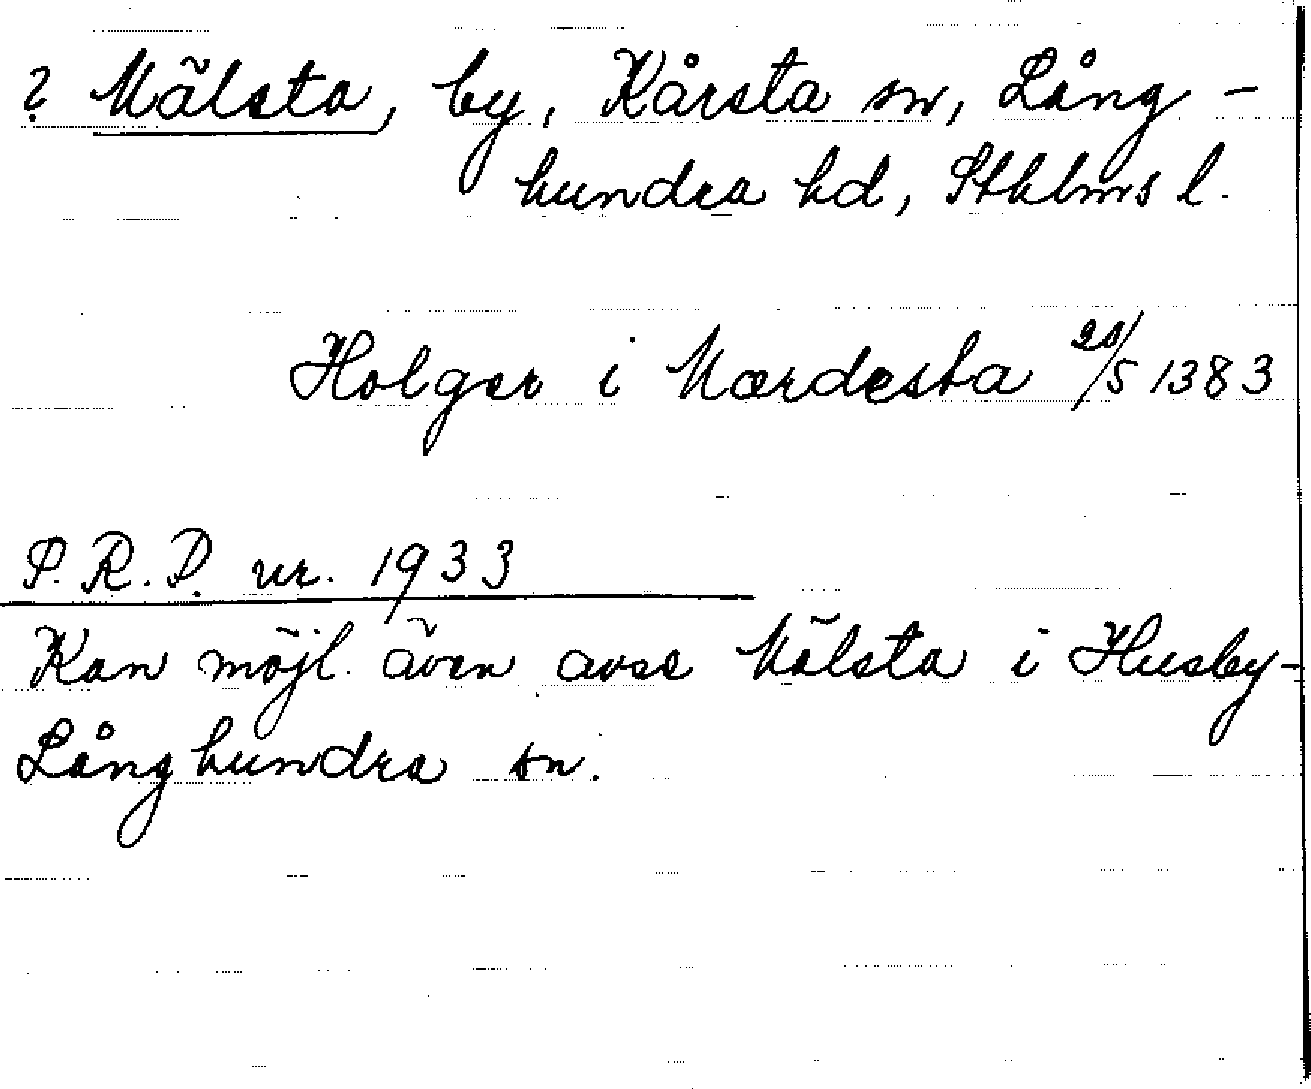 ? Mälsta, by, Kårsta sn, Lång-
hundra hd, Sthlms l.
Holger i Mærdesta 20/5 1383
S.R.P. nr. 1933
Kan möjl. även avse Mälsta i Husby-
Långhundra sn.